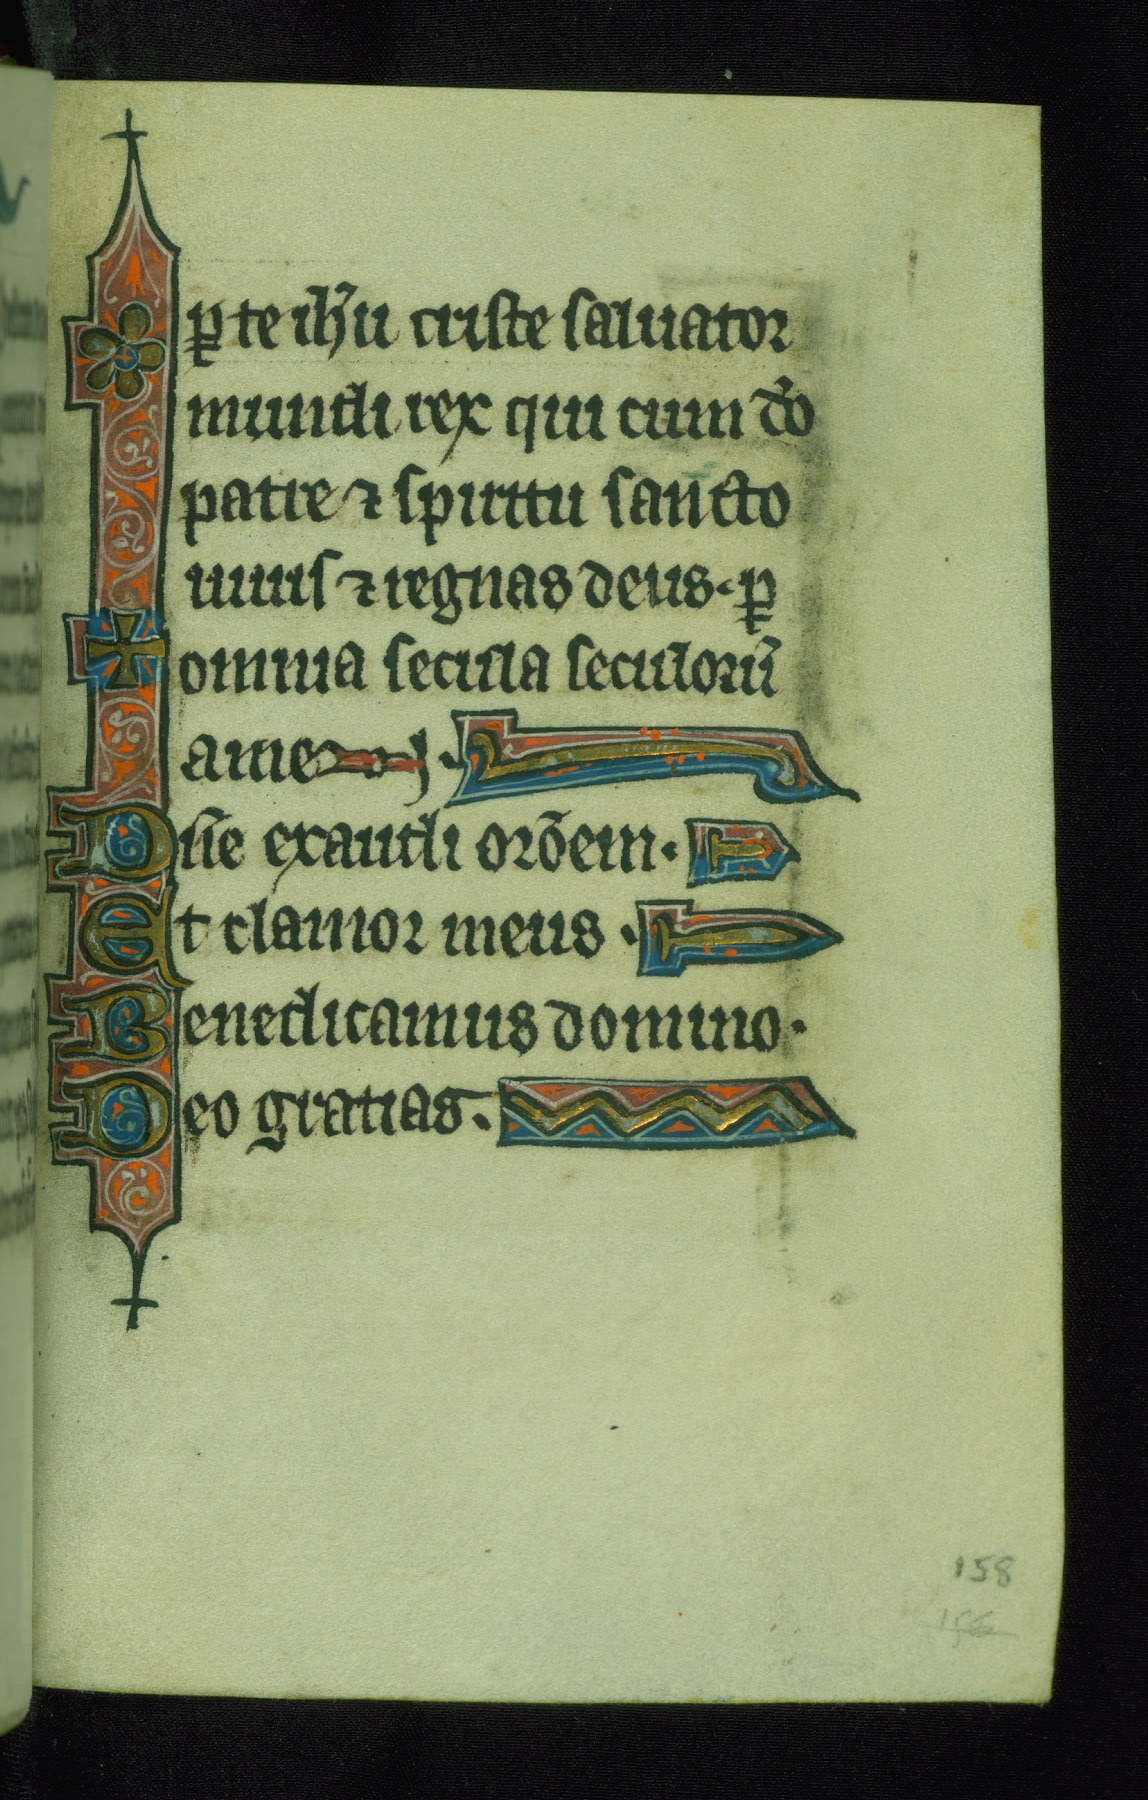 ꝑ te ih̅u criste saluator
mundi rex qui cum do̅
patre ⁊ spiritu san̅cto
uiuis ⁊ regnas deus· ꝑ
omnia secula seculoru̅
amen·
Dn̅e exaudi oro̅em·
Et clamor meus·
Benedicamus domino·
Deo gratias.
158